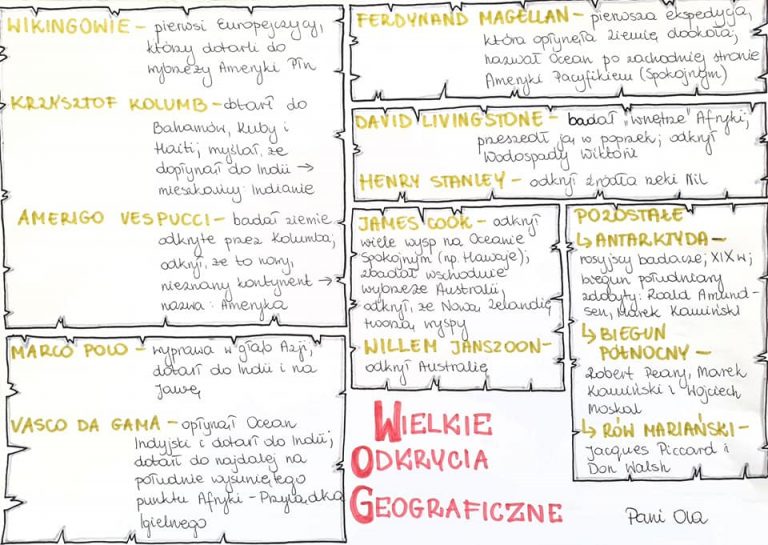 WIKINGOWIE – pierwsi Europejczycy,
którzy dotarli do
wybrzeży Ameryki Płn
KRZYSZTOF KOLUMB – dotarł do
Bahamów, Kuby i
Haiti; myślał, że
dopłynął do Indii →
mieszkańcy: Indianie
AMERIGO VESPUCCI – badał ziemie
odkryte przez Kolumba;
odkrył, że to nowy,
nieznany kontynent →
nazwa: Ameryka
MARCO POLO – wyprawa w głąb Azji;
dotarł do Indii i na
Jawę
VASCO DA GAMA – opłynął Ocean
Indyjski i dotarł do Indii;
dotarł do najdalej na
południe wysuniętego
punktu Afryki – Przylądka
Igielnego
FERDYNAND MAGELLAN – pierwsza ekspedycja,
która opłynęła Ziemię dookoła;
nazwał Ocean po zachodniej stronie
Ameryki Pacyfikiem (Spokojnym)
DAVID LIVINGSTONE – badał "wnętrze" Afryki;
przeszedł ją w poprzek; odkrył
Wodospady Wiktorii
HENRY STANLEY – odkrył źródła rzeki Nil
JAMES COOK – odkrył
wiele wysp na Oceanie
Spokojnym (np. Hawaje);
zbadał wschodnie
wybrzeże Australii;
odkrył, że Nową Zelandię
tworzą wyspy
WILLEM JANSZOON –
odkrył Australię
POZOSTAŁE
↳ ANTARKTYDA –
rosyjscy badacze; XIX w;
biegun południowy
zdobyty: Roald Amund-
sen, Marek Kamiński
↳ BIEGUN
PÓŁNOCNY –
Robert Peary, Marek
Kamiński i Wojciech
Moskal
↳ RÓW MARIAŃSKI –
Jacques Piccard i
Don Walsh
WIELKIE
ODKRYCIA
GEOGRAFICZNE
Pani Ola